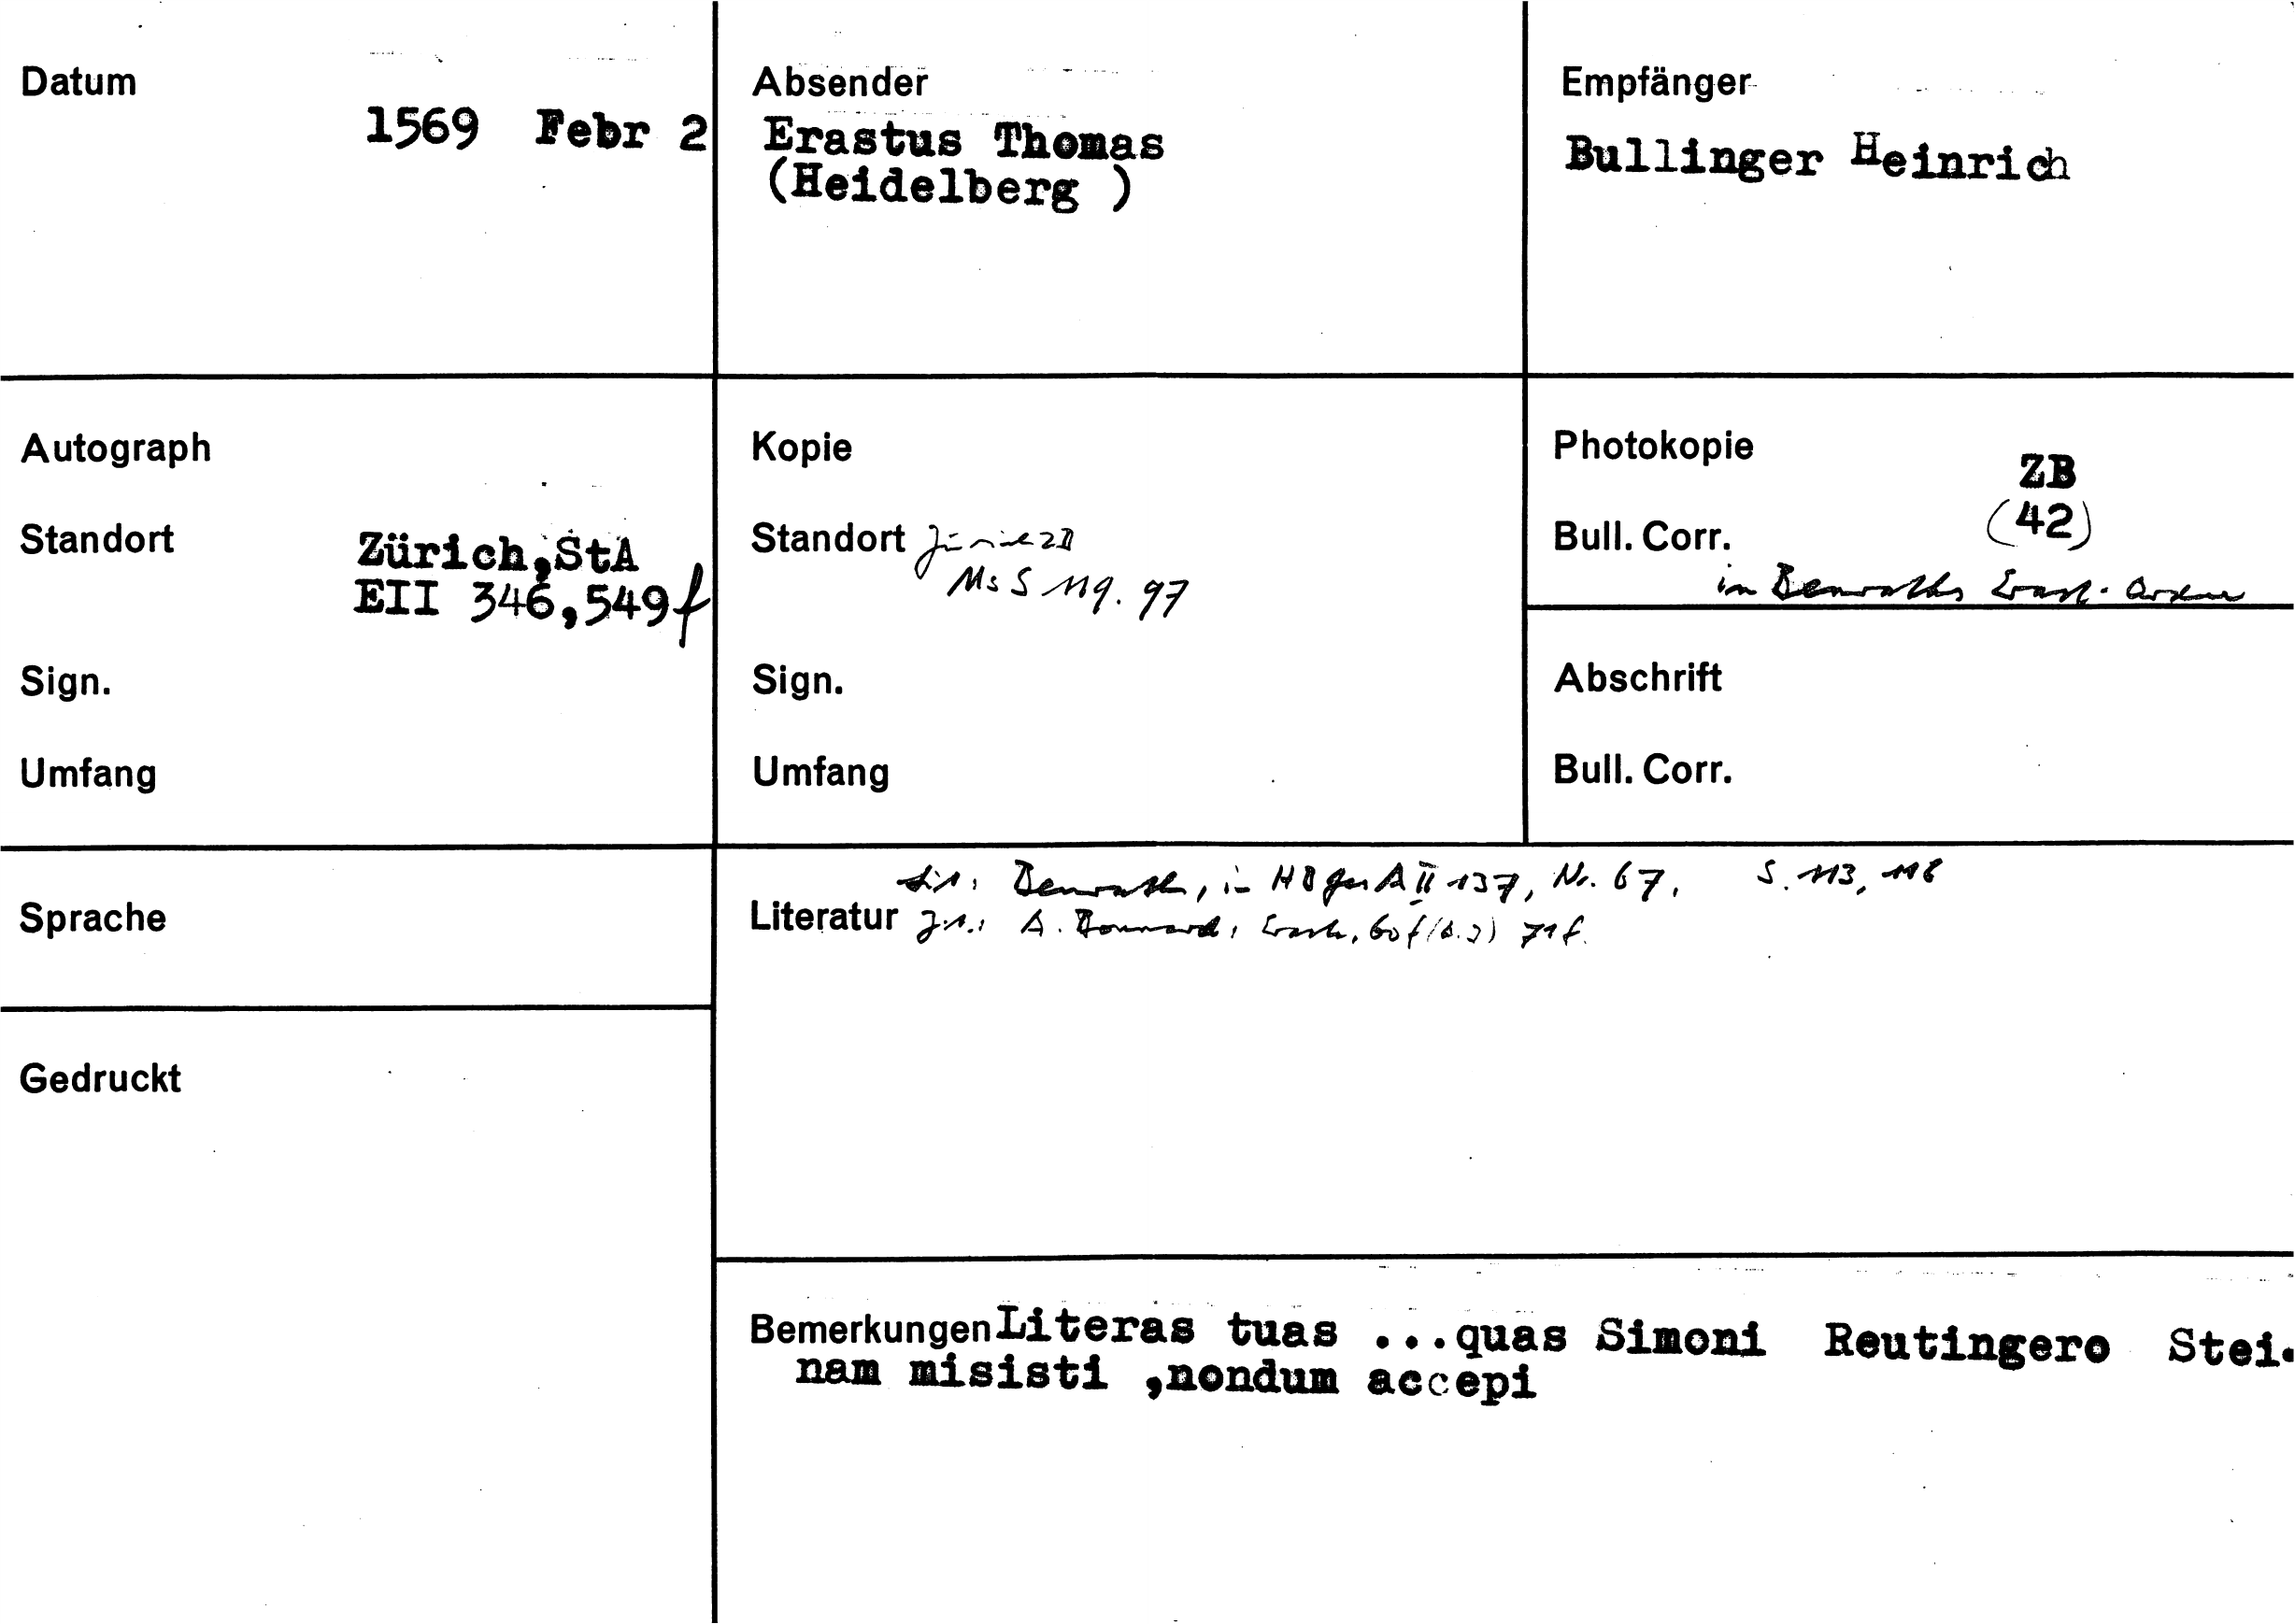 Datum
1569 Febr 2
Absender
Erastus Thomas
(Heidelberg )
Empfänger
Bullinger Heinrich
Autograph
Standort
Zürich,StA
EII 346,549f
Sign.
Umfang
Kopie
Standort Zürich ZB
Ms S 119. 97
Sign.
Umfang
Photokopie
ZB
(42)
Bull. Corr.
in Benraths Erast.
Abschrift
Bull. Corr.
Sprache
Gedruckt
Benrath, in II 137, Nr. 67, S. 113, 118
Literatur A. Bonnard, Erast, 60f 71f.
Bemerkungen Literas tuas ...quas Simoni Reutingero Stei.
nam misisti ,nondum accepi